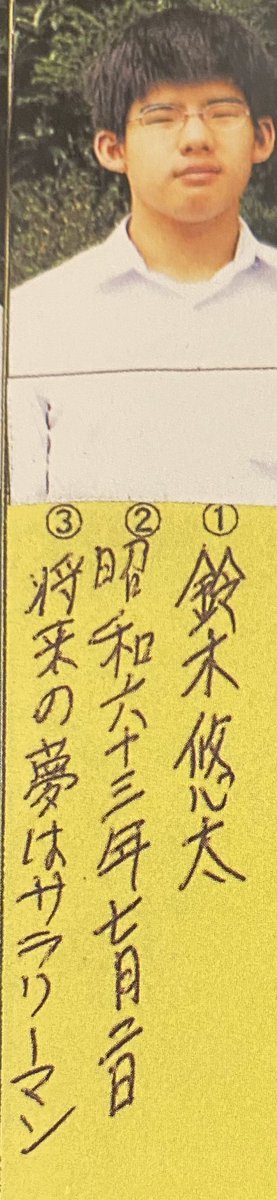 ①鈴木悠太
②昭和六十三年七月二日
③将来の夢はサラリーマン